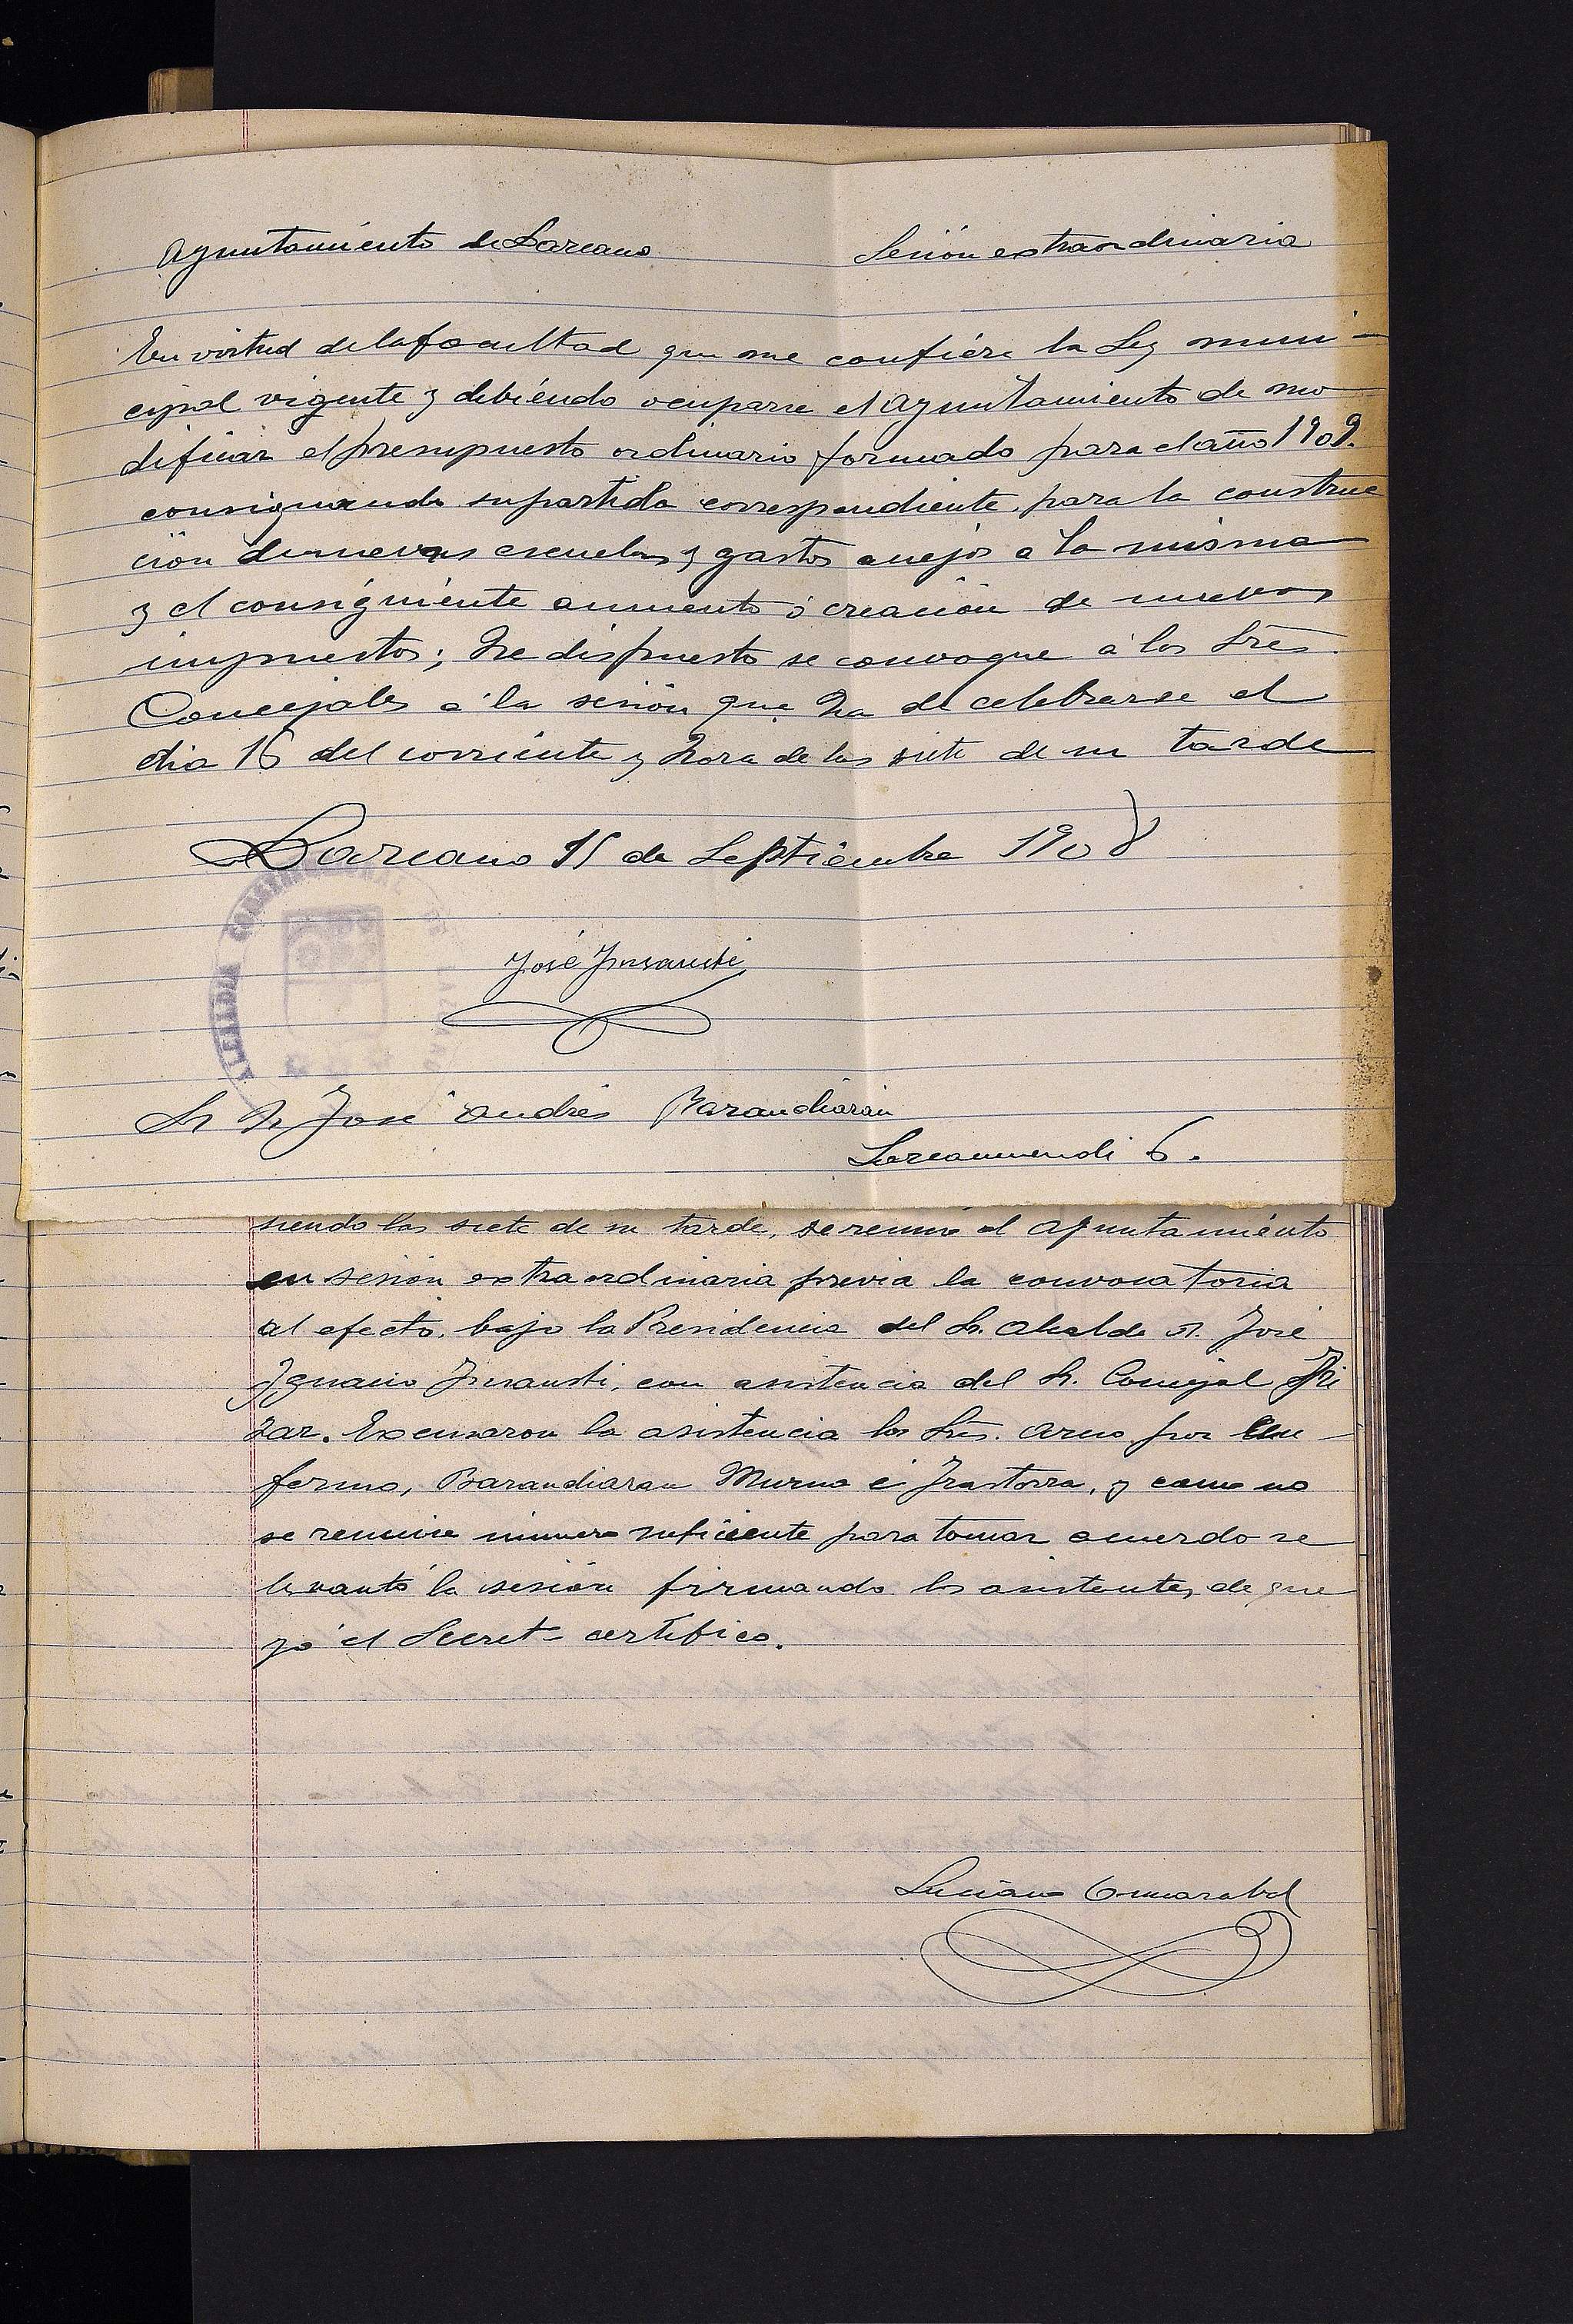 Ayuntamiento de Lazcano Sesión extraordinaria
En virtud de la facultad que me confiere la Ley muni-
cipal vigente y debiendo ocuparse el Ayuntamiento de mo
dificar el presupuesto ordinario formado para el año 1909.
consignando su partida correspondiente, para la construc
ción de nuevas escuelas y gastos anejos a la misma
y el consiguiente aumento ó creación de nuevos
impuestos; he dispuesto se convoque á los Sres.
Concejales a la sesión que ha de celebrarse el
dia 16 del corriente y hora de las siete de su tarde
Lazcano 15 de Septiembre 1908
ALCALDIA CONSTITUCIONAL DE LAZCANO
José Insausti
Sr Dn José Andrés Barandiarán
Lazcanomendi 6.
siendo las siete de su tarde, se reunió el Ayuntamiento
en sesión extraordinaria previa la convocatoria
al efecto, bajo la Presidencia del Sr. Alcalde D. José
Ignacio Insausti, con asistencia del Sr. Concejal Iri
zar. Excusaron la asistencia los Sres. por en-
fermo, Barandiaran Murua é Irastorza, y como no
se reuniese número suficiente para tomar acuerdo se
levantó la sesión firmando los asistentes, de que
yo el Secret° certifico.
Luciano